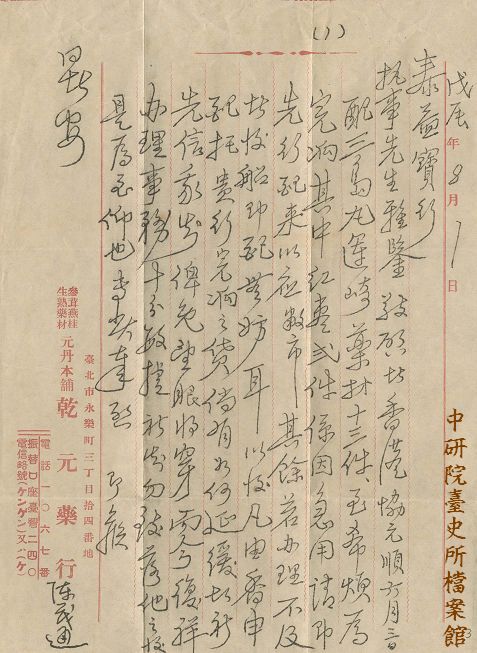 (1)
戊辰年8月1日
泰益寶行
执事先生雅鑒 敬啓者香港協元順六月三日
配三島丸運崎藥材十三件、至希煩為
完餉其中紅棗弍件係因急用請即
先行配来以應敝市 其餘若办理不及
者後船即配無妨耳 以後凡由香申
配托貴行完餉之貨倘有如何延緩者祈
先信示知俾免望眼将穿 復祥
办理事務十分敏捷祈勿致落他之後
是為至仰也 專此達 即候
暑安
臺北市永樂町三丁目拾四番地
參茸燕桂
生熟藥材
元丹本舖 乾元藥行 陳茂通
電話一〇六七番
振替口座臺灣二四〇
電信略號(ケンゲン)又ハ(ケ)
中研院臺史所檔案館